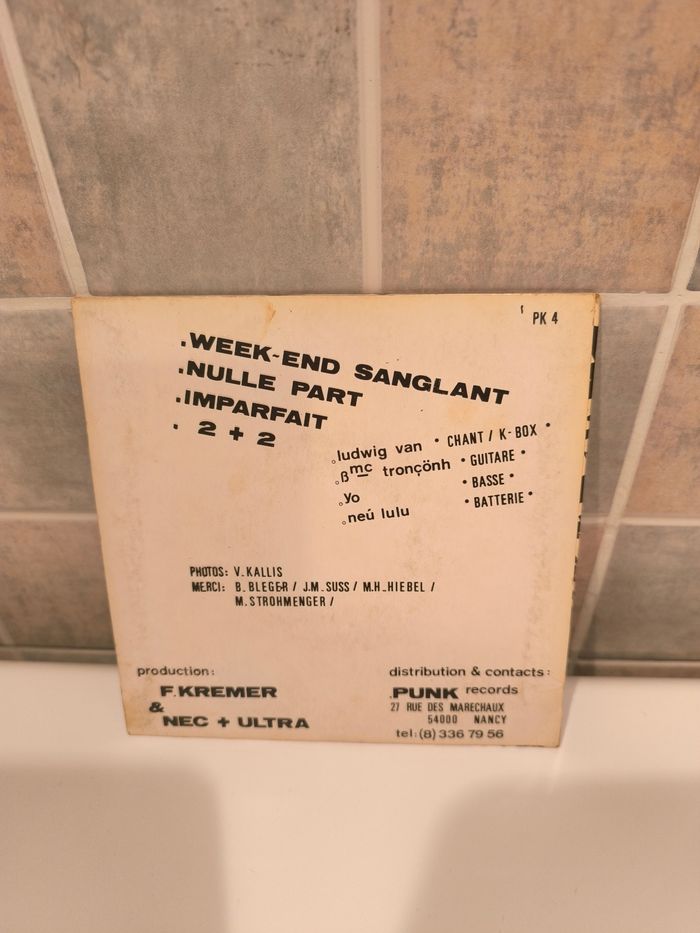 PK 4
.WEEK-END SANGLANT
.NULLE PART
.IMPARFAIT
. 2 + 2
ludwig van • CHANT / K-BOX •
ßmc tronçönh • GUITARE •
yo • BASSE •
neú lulu • BATTERIE •
PHOTOS: V. KALLIS
MERCI: B. BLEGER / J.M. SUSS / M.H. HIEBEL /
M. STROHMENGER /
production:
F. KREMER
&
NEC + ULTRA
distribution & contacts:
.PUNK records
27 RUE DES MARECHAUX
54000 NANCY
tel: (8) 336 79 56